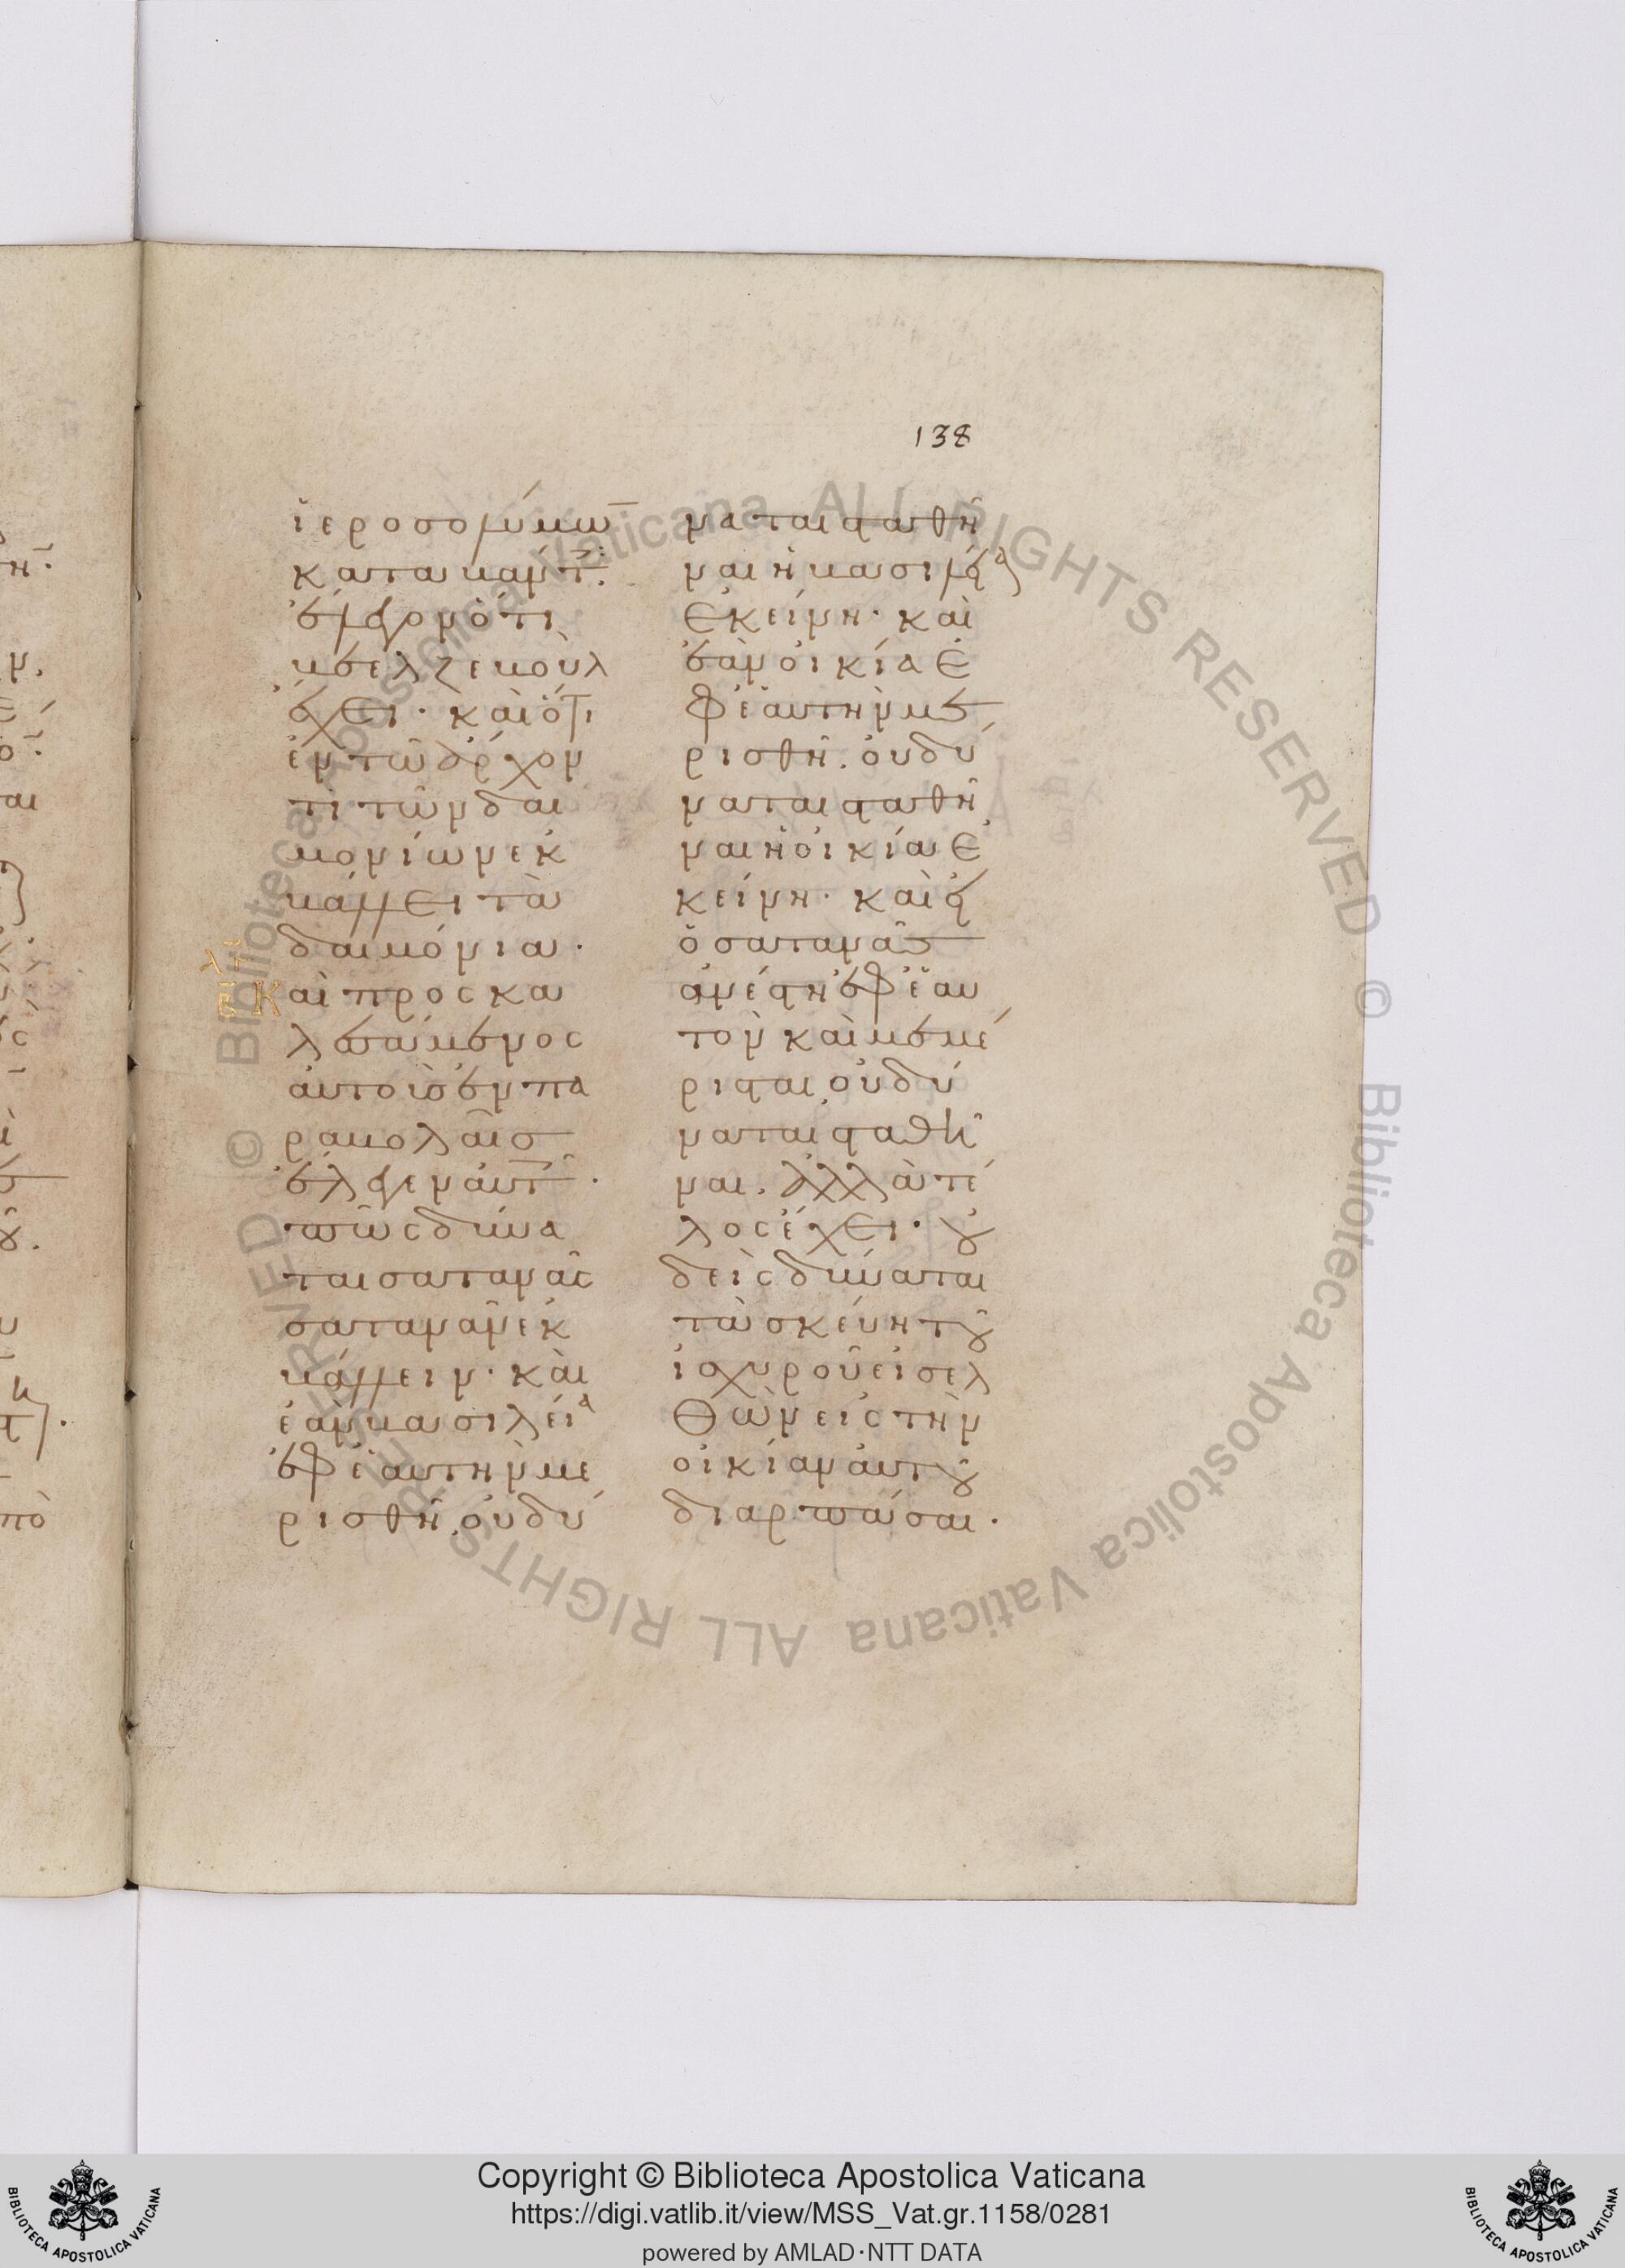 138
ἱεροσολύμω̅
καταβάντ̅:
ἔλεγον ὅτι
βεελζεβοὺλ
ἔχει· καὶ ὅτι
ἐν τῶ ἄρχον
τι τῶν δαι
μονίων ἐκ
βάλλει τὰ
δαιμόνια·
λγ
β Καὶ προσκα
λεσάμενος
αὐτοὺς ἐν πα
ραβολαῖσ
ἔλεγεν αὐτ̅·
πῶς δύνα
ται σατανᾶς
σατανᾶν ἐκ
βάλλειν· καὶ
ἐὰν βασιλεία
ἐφ ἑαυτὴν με
ρισθῆ, οὐ δύ
ναται σταθῆ
ναι ἡ βασιλεία
ἐκείνη· καὶ
ἐὰν οἰκία ἐ
φ ἑαυτὴν με
ρισθῆ. οὐ δύ
ναται σταθῆ
ναι ἡ οἰκία ἐ
κείνη· καὶ εἰ
ὁ σατανᾶσ
ἀνέστη ἐφ ἑαυ
τὸν καὶ μεμέ
ρισται, οὐ δύ
ναται σταθῆ
ναι. ἀλλὰ τέ
λος ἔχει· οὐ
δεὶς δύναται
τὰ σκεύη τοῦ
ἰσχυροῦ εἰσελ
θὼν εἰς τὴν
οἰκίαν αὐτοῦ
διαρπάσαι·
Biblioteca Apostolica Vaticana ALL RIGHTS RESERVED © Biblioteca Apostolica Vaticana ALL RIGHTS RESERVED ©
Copyright © Biblioteca Apostolica Vaticana
https://digi.vatlib.it/view/MSS_Vat.gr.1158/0281
powered by AMLAD·NTT DATA
BIBLIOTECA APOSTOLICA VATICANA
BIBLIOTECA APOSTOLICA VATICANA